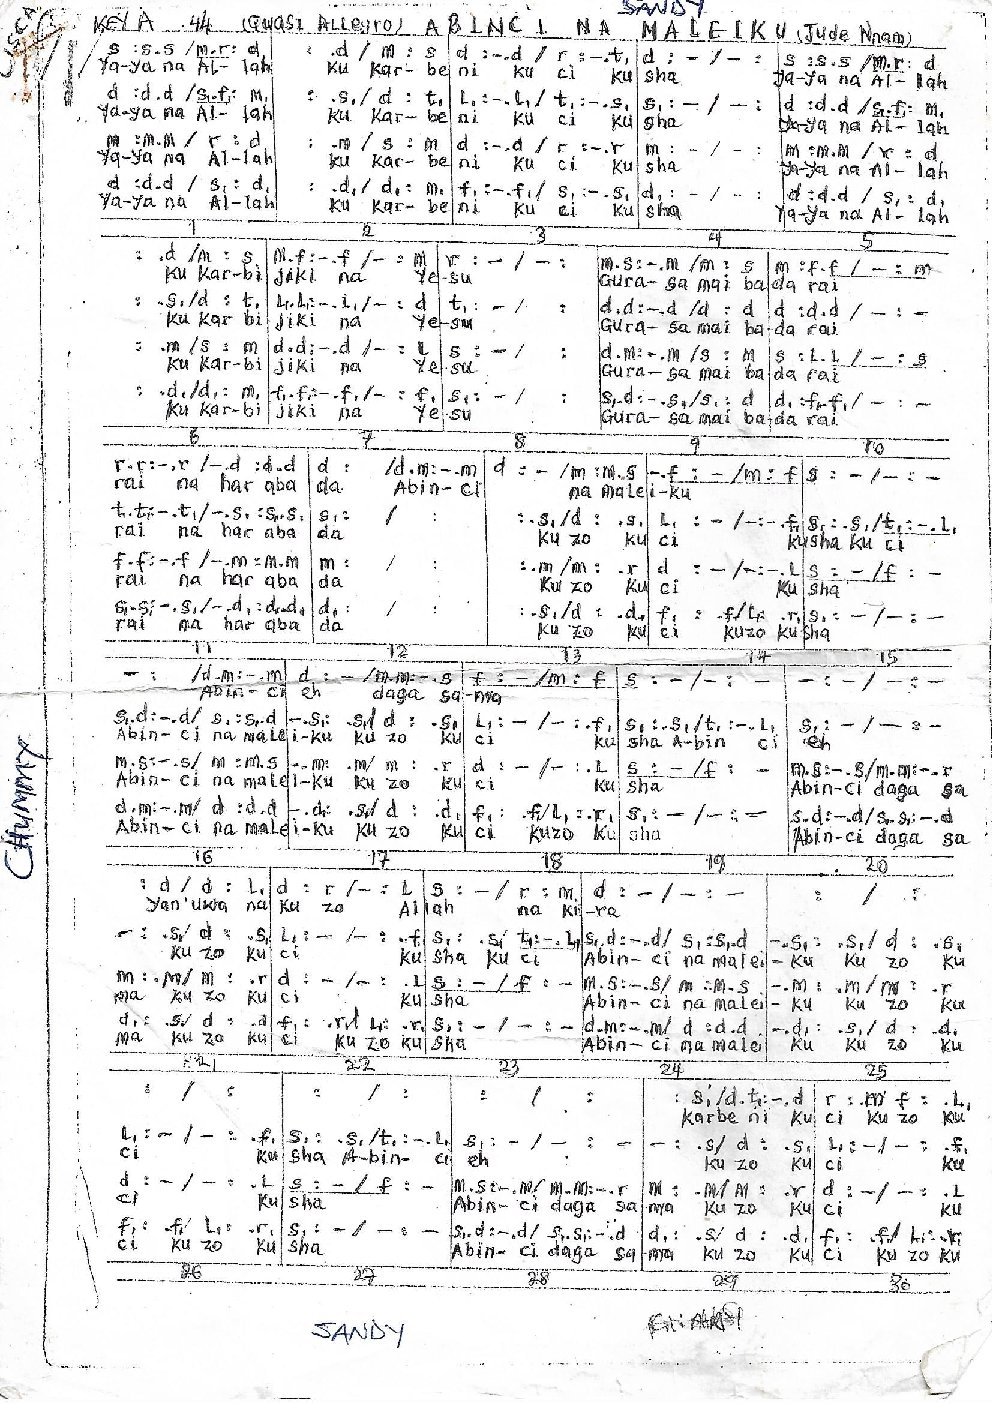 SANDY
KEY A .44 (Quasi Allegro) ABINCI NA MALEIKU (Jude Nnam)
s :s.s /m.r: d, : .d / m : s d :-.d / r :-.t, d : - / - : s :s.s /m.r: d
Ya-ya na Al- lah ku kar- be ni ku ci ku sha Ya-ya na Al- lah
d :d.d /s,.f,: m, : .s, / d : t, L, :-.L, / t, :-.s, s, : - / - : d :d.d / s,.f,: m,
Ya-ya na Al- lah ku kar- be ni ku ci ku sha Ya-ya na Al- lah
m :m.m / r : d : .m / s : m d :-.d / r :-.r m : - / - : m :m.m / r : d
Ya-ya na Al-lah ku kar- be ni ku ci ku sha Ya-ya na Al- lah
d :d.d / s, : d, : .d, / d, : m, f, :-.f, / s, :-.s, d, : - / - : d :d.d / s, : d,
Ya-ya na Al- lah ku kar- be ni ku ci ku sha Ya-ya na Al- lah
1 2 3 4 5
: .d /m : s m.f:-.f /- : m r : - / - : m.s:-.m /m : s m :f.f / - : m
ku kar-bi jiki na Ye-su Gura- sa mai ba da rai
: .s, /d : t, L,.L,:-.L, /- : d t, : - / : d.d:-.d /d : d d :d.d / - : -
ku kar bi jiki na Ye-su Gura- sa mai ba-da rai
: .m /s : m d.d:-.d /- : L s : - / : d.m:-.m /s : m s :L.L / - : s
ku kar-bi jiki na Ye-su Gura- sa mai ba da rai
: .d, /d, : m, f,.f,:-.f, /- : f, s, : - / : s,.d:-.s, /s, : d d, :f,.f, / - : -
ku kar-bi jiki na Ye-su Gura- sa mai ba-da rai
6 7 8 9 10
r.r:-.r /-.d :d.d d : /d.m:-.m d : - /m :m.s -.f : - /m : f s : - / - : -
rai na har aba da Abin-ci na malei-ku
t,.t,:-.t, /-.s, :s,.s, s, : / : :.s, /d : .s, L, : - /-:-.f, s, : .s, /t, :-.L,
rai na har aba da ku zo ku ci ku sha ku ci
f.f:-.f /-.m :m.m m : / : :.m /m : .r d : - /-:-.L s : - /f : -
rai na har aba da ku zo ku ci ku sha
s,.s,:-.s, /-.d, :d,.d, d, : / : :.s, /d : .d, f, : .f, /L, : .r, s, : - / - : -
rai na har aba da ku zo ku ci kuzo ku sha
11 12 13 14 15
- : /d.m:-.m d : - /m.m:-.s f : - /m : f s : - / - : - - : - / - : -
Abin- ci eh daga sa-ma
s,.d:-.d / s, :s,.d -.s, : .s, / d : .s, L, : - / - : .f, s, : .s, /t, :-.L, s, : - / - : -
Abin- ci na malei-ku ku zo ku ci ku sha A-bin ci eh
m.s:-.s / m :m.s -.m : .m / m : .r d : - / - : .L s : - /f : - m.s:-.s /m.m:-.r
Abin- ci na malei-ku ku zo ku ci ku sha Abin-ci daga sa
d.m:-.m / d :d.d -.d : .s, / d : .d, f, : .f, /L, : .r, s, : - / - : - s.d:-.d /s,.s,:-.d
Abin- ci na malei-ku ku zo ku ci kuzo ku sha Abin-ci daga sa
16 17 18 19 20
: d / d : L, d : r / - : L s : - / r : m d : - / - : - : / :
Yan'uwa na ku zo Allah na ki-ra
- : .s, / d : .s, L, : - / - : .f, s, : .s, / t, :-.L, s,.d:-.d / s, :s,.d -.s, : .s, / d : .s,
ku zo ku ci ku sha ku ci Abin- ci na malei- ku ku zo ku
m : .m / m : .r d : - / - : .L s : - / f : - m.s:-.s / m :m.s -.m : .m / m : .r
ma ku zo ku ci ku sha Abin- ci na malei- ku ku zo ku
d, : .s, / d : .d f, : .r, / L, : .r, s, : - / - : - d.m:-.m / d :d.d -.d, : .s, / d : .d,
ma ku zo ku ci ku zo ku sha Abin- ci na malei ku ku zo ku
21 22 23 24 25
: / : : / : : / : : s, /d.t,:-.d r : .m f : .L,
karbe ni ku ci ku zo ku
L, : - / - : .f, s, : .s, /t, :-.L, s, : - / - : - - : .s, / d : .s, L, : - / - : .f,
ci ku sha A-bin- ci eh ku zo ku ci ku
d : - / - : .L s : - / f : - m.s:-.m / m.m:-.r m : .m / m : .r d : - / - : .L
ci ku sha Abin- ci daga sa ma ku zo ku ci ku
f, : .f, / L, : .r, s, : - / - : - s,.d:-.d / s,.s,:-.d d, : .s, / d : .d, f, : .f, / L, :.r,
ci ku zo ku sha Abin- ci daga sa ma ku zo ku ci ku zo ku
26 27 28 29 30
SANDY
CHUMMY